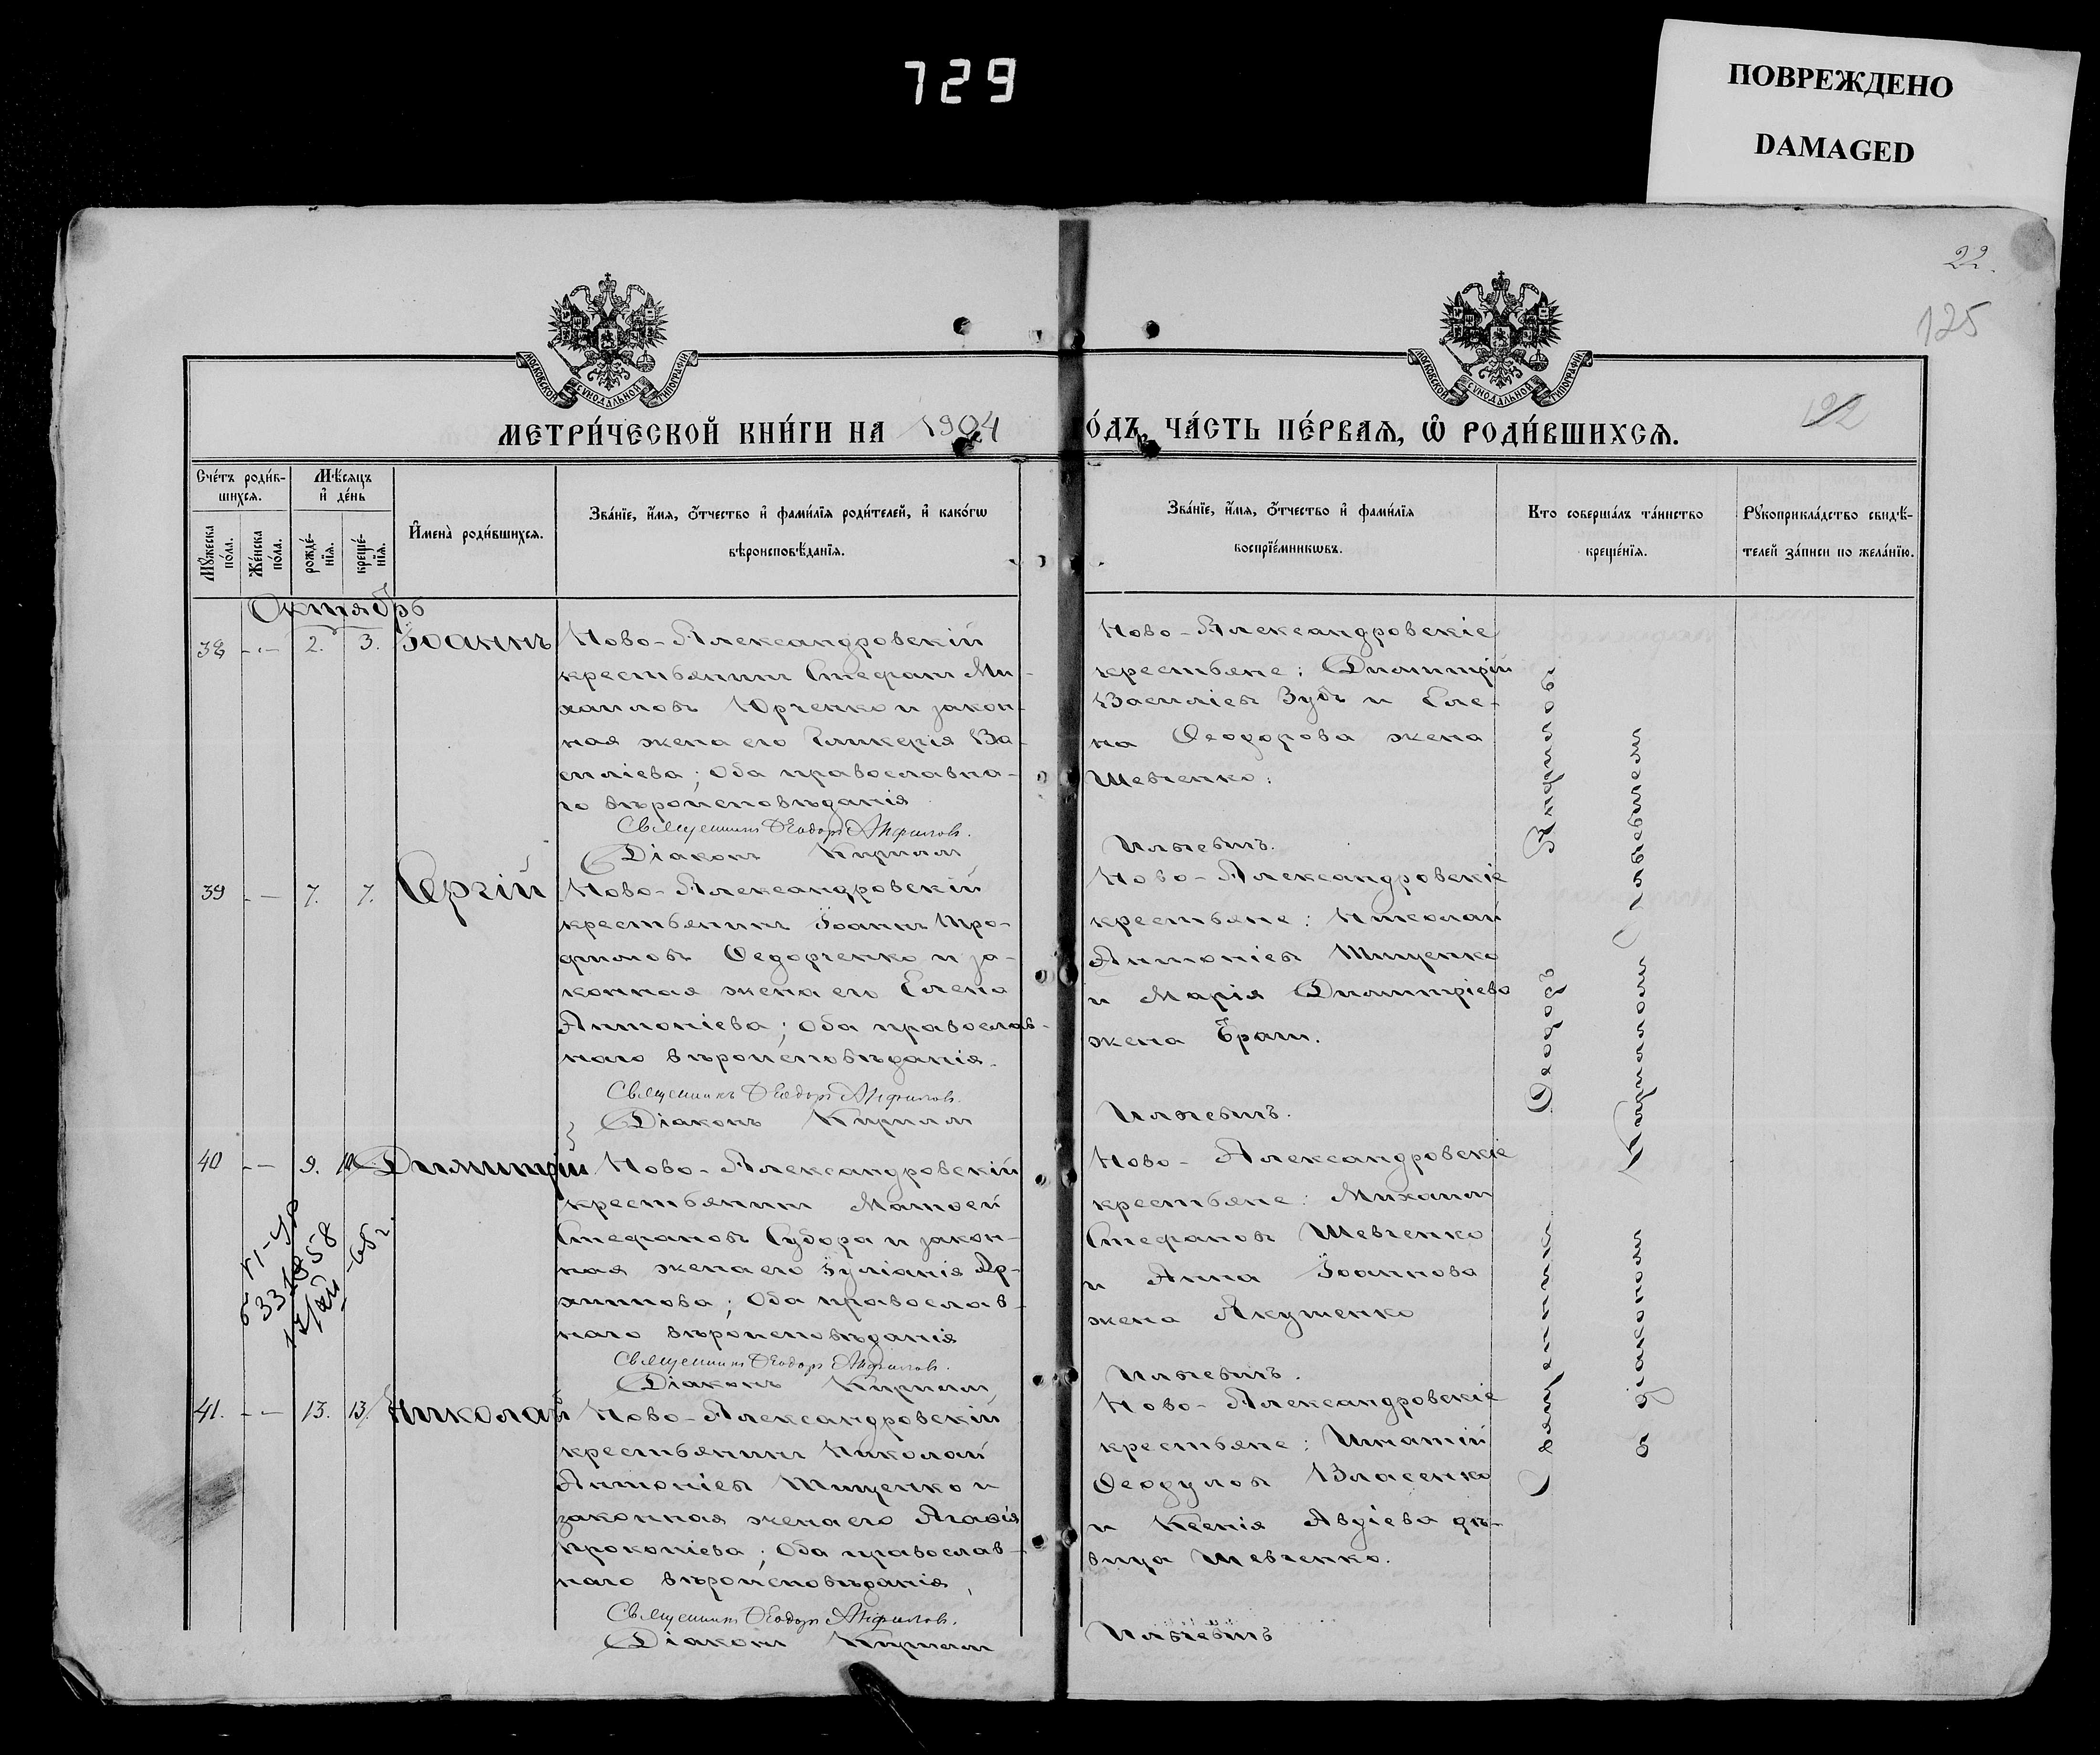 729
ПОВРЕЖДЕНО
DAMAGED
22.
125
122
МОСКОВСКОЙ СѴНОДАЛЬНОЙ ТИПОГРАФІИ
МОСКОВСКОЙ СѴНОДАЛЬНОЙ ТИПОГРАФІИ
МЕТРИ́ЧЕСКОЙ КНИ́ГИ НА 1904
О́ДЪ, ЧА́СТЬ ПЕ́РВАЯ, Ѡ҆ РОДИ́ВШИХСЯ.
Сче́тъ роди́в-
шихся.
Мѣ́сяцъ
и҆ де́нь
Мꙋ́жеска по́ла.
Же́нска по́ла.
рожде́-
нїя.
креще́-
нїя.
И҆мена̀ роди́вшихся.
Зва́нїе, и҆́мя, ѻ҆́тчество и҆ фами́лїя роди́телей, и҆ како́гѡ
вѣроисповѣ́данїя.
Зва́нїе, и҆́мя, ѻ҆́тчество и҆ фами́лїя
воспрїе́мникѡвъ.
Кто соверша́лъ та́инство
креще́нїя.
Рꙋкоприкла́дство свидѣ́-
телей за́писи по жела́нїю.
Октябрь
38 - - 2. 3. Іоаннъ
Ново-Александровскій
крестьянинъ Стефанъ Ми-
хаиловъ Юрченко и закон-
ная жена его Гликерія Ва-
силіева; Оба православна-
го вѣроисповѣданія
Священникъ Ѳеодоръ Анфиловъ.
Діаконъ Кириллъ
Ново-Александровскіе
крестьяне: Димитрій
Василіевъ Зубъ и Еле-
на Ѳеодорова жена
Шевченко.
Илькевичъ.
39 - - 7. 7. Сергій
Ново-Александровскій
крестьянинъ Іоаннъ Тро-
фимовъ Ѳедорченко и за-
конная жена его Елена
Антоніева; Оба православ-
наго вѣроисповѣданія.
Священникъ Ѳеодоръ Анфиловъ.
Діаконъ Кириллъ
Ново-Александровскіе
крестьяне: Николай
Антоніевъ Тищенко
и Марія Димитріева
жена
Илькевичъ.
40 - - 9. 10. Димитрій
Ново-Александровскій
крестьянинъ Матѳей
Стефановъ Судора и закон-
ная жена его Іуліанія Ар-
хиппова; Оба православ-
наго вѣроисповѣданія
Священникъ Ѳеодоръ Анфиловъ.
Діаконъ Кириллъ
Ново-Александровскіе
крестьяне: Михаилъ
Стефановъ Шевченко
и Анна Іоаннова
жена Якушенко
Илькевичъ.
41. - - 13. 13. Николай
Ново-Александровскій
крестьянинъ Николай
Антоніевъ Тищенко и
законная жена его Агаѳія
Прокопіева; Оба православ-
наго вѣроисповѣданія,
Священникъ Ѳеодоръ Анфиловъ.
Діаконъ Кириллъ
Ново-Александровскіе
крестьяне: Игнатій
Ѳеодуловъ Власенко
и Ксенія Авдіева дѣ-
вица Шевченко.
Илькевичъ
Священникъ Ѳеодоръ Анфиловъ